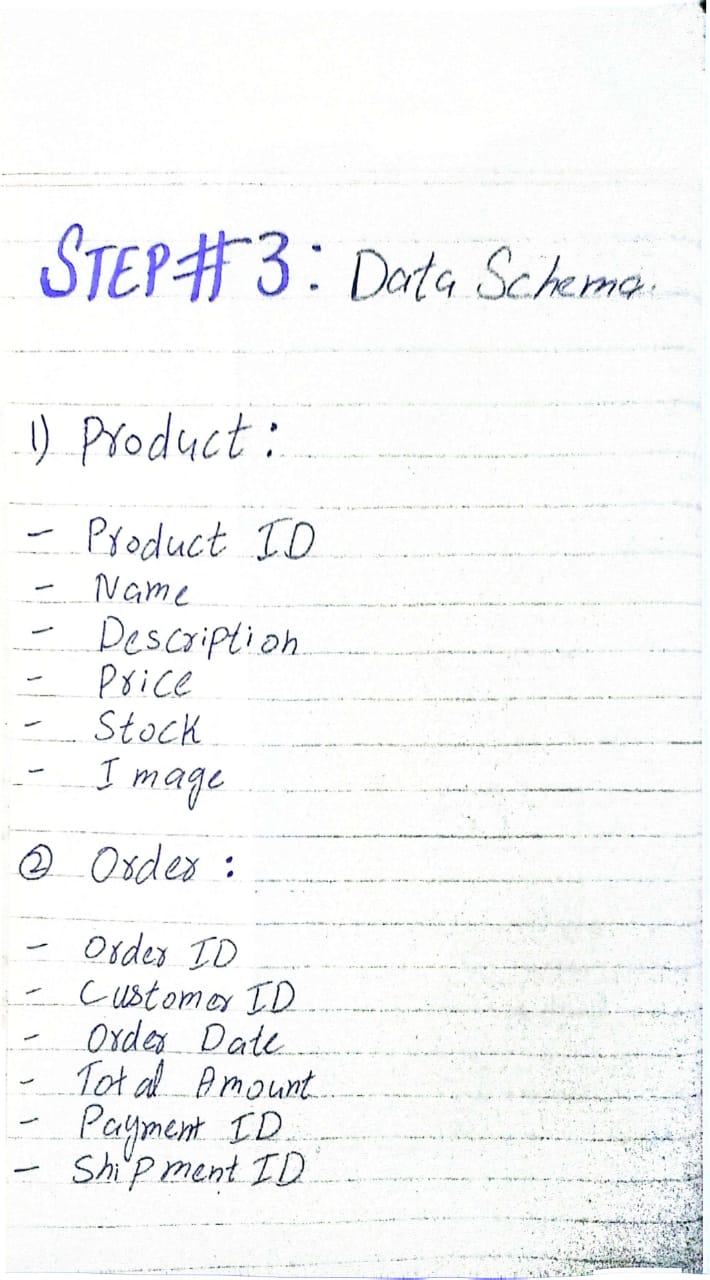 STEP#3: Data Schema.
1) Product:
- Product ID
- Name
- Description
- Price
- Stock
- Image
② Order:
- Order ID
- Customer ID
- Order Date
- Total Amount
- Payment ID
- Shipment ID